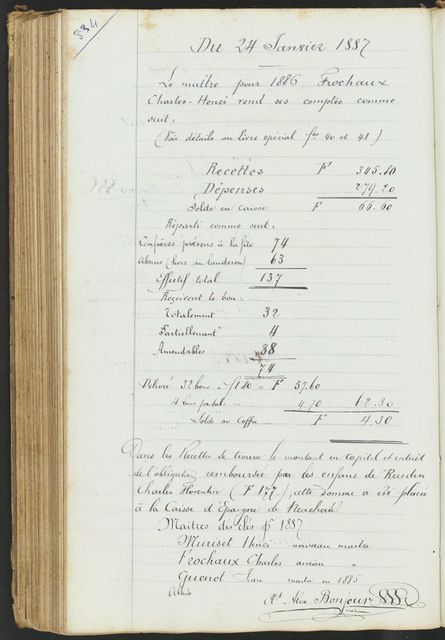 334
Du 24 Janvier 1887
Le maître pour 1886 Frochaux
Charles-Henri rend ses comptes comme
suit:
(Voir détails au livre spécial fos 40 et 41)
Recettes Fr 345.80
Dépenses 279.20
Solde en caisse Fr 66.60
Réparti comme suit:
Confrères présens à la fête 74
Absens (hors au landeron) 63
Effectif total 137
Reçoivent le bon:
Totalement 32
Partiellement 4
Amendables 38
74
Délivré 32 bons à f 1.80 = Fr 57.60
4 bons partiels 4.70 62.30
Solde au Coffre Fr 4.30
Dans les Recettes se trouve le montant en capital et intérêt
de l'obligation remboursée par les enfans de Ruedin
Charles Florentin (F 177); cette somme a été placée
à la Caisse d'Epargne de Neuchâtel
Maîtres des clés pr 1887
Muriset Henri nouveau maître
Frochaux Charles ancien "
Guenot Jean maître en 1885
Alex. Bonjour